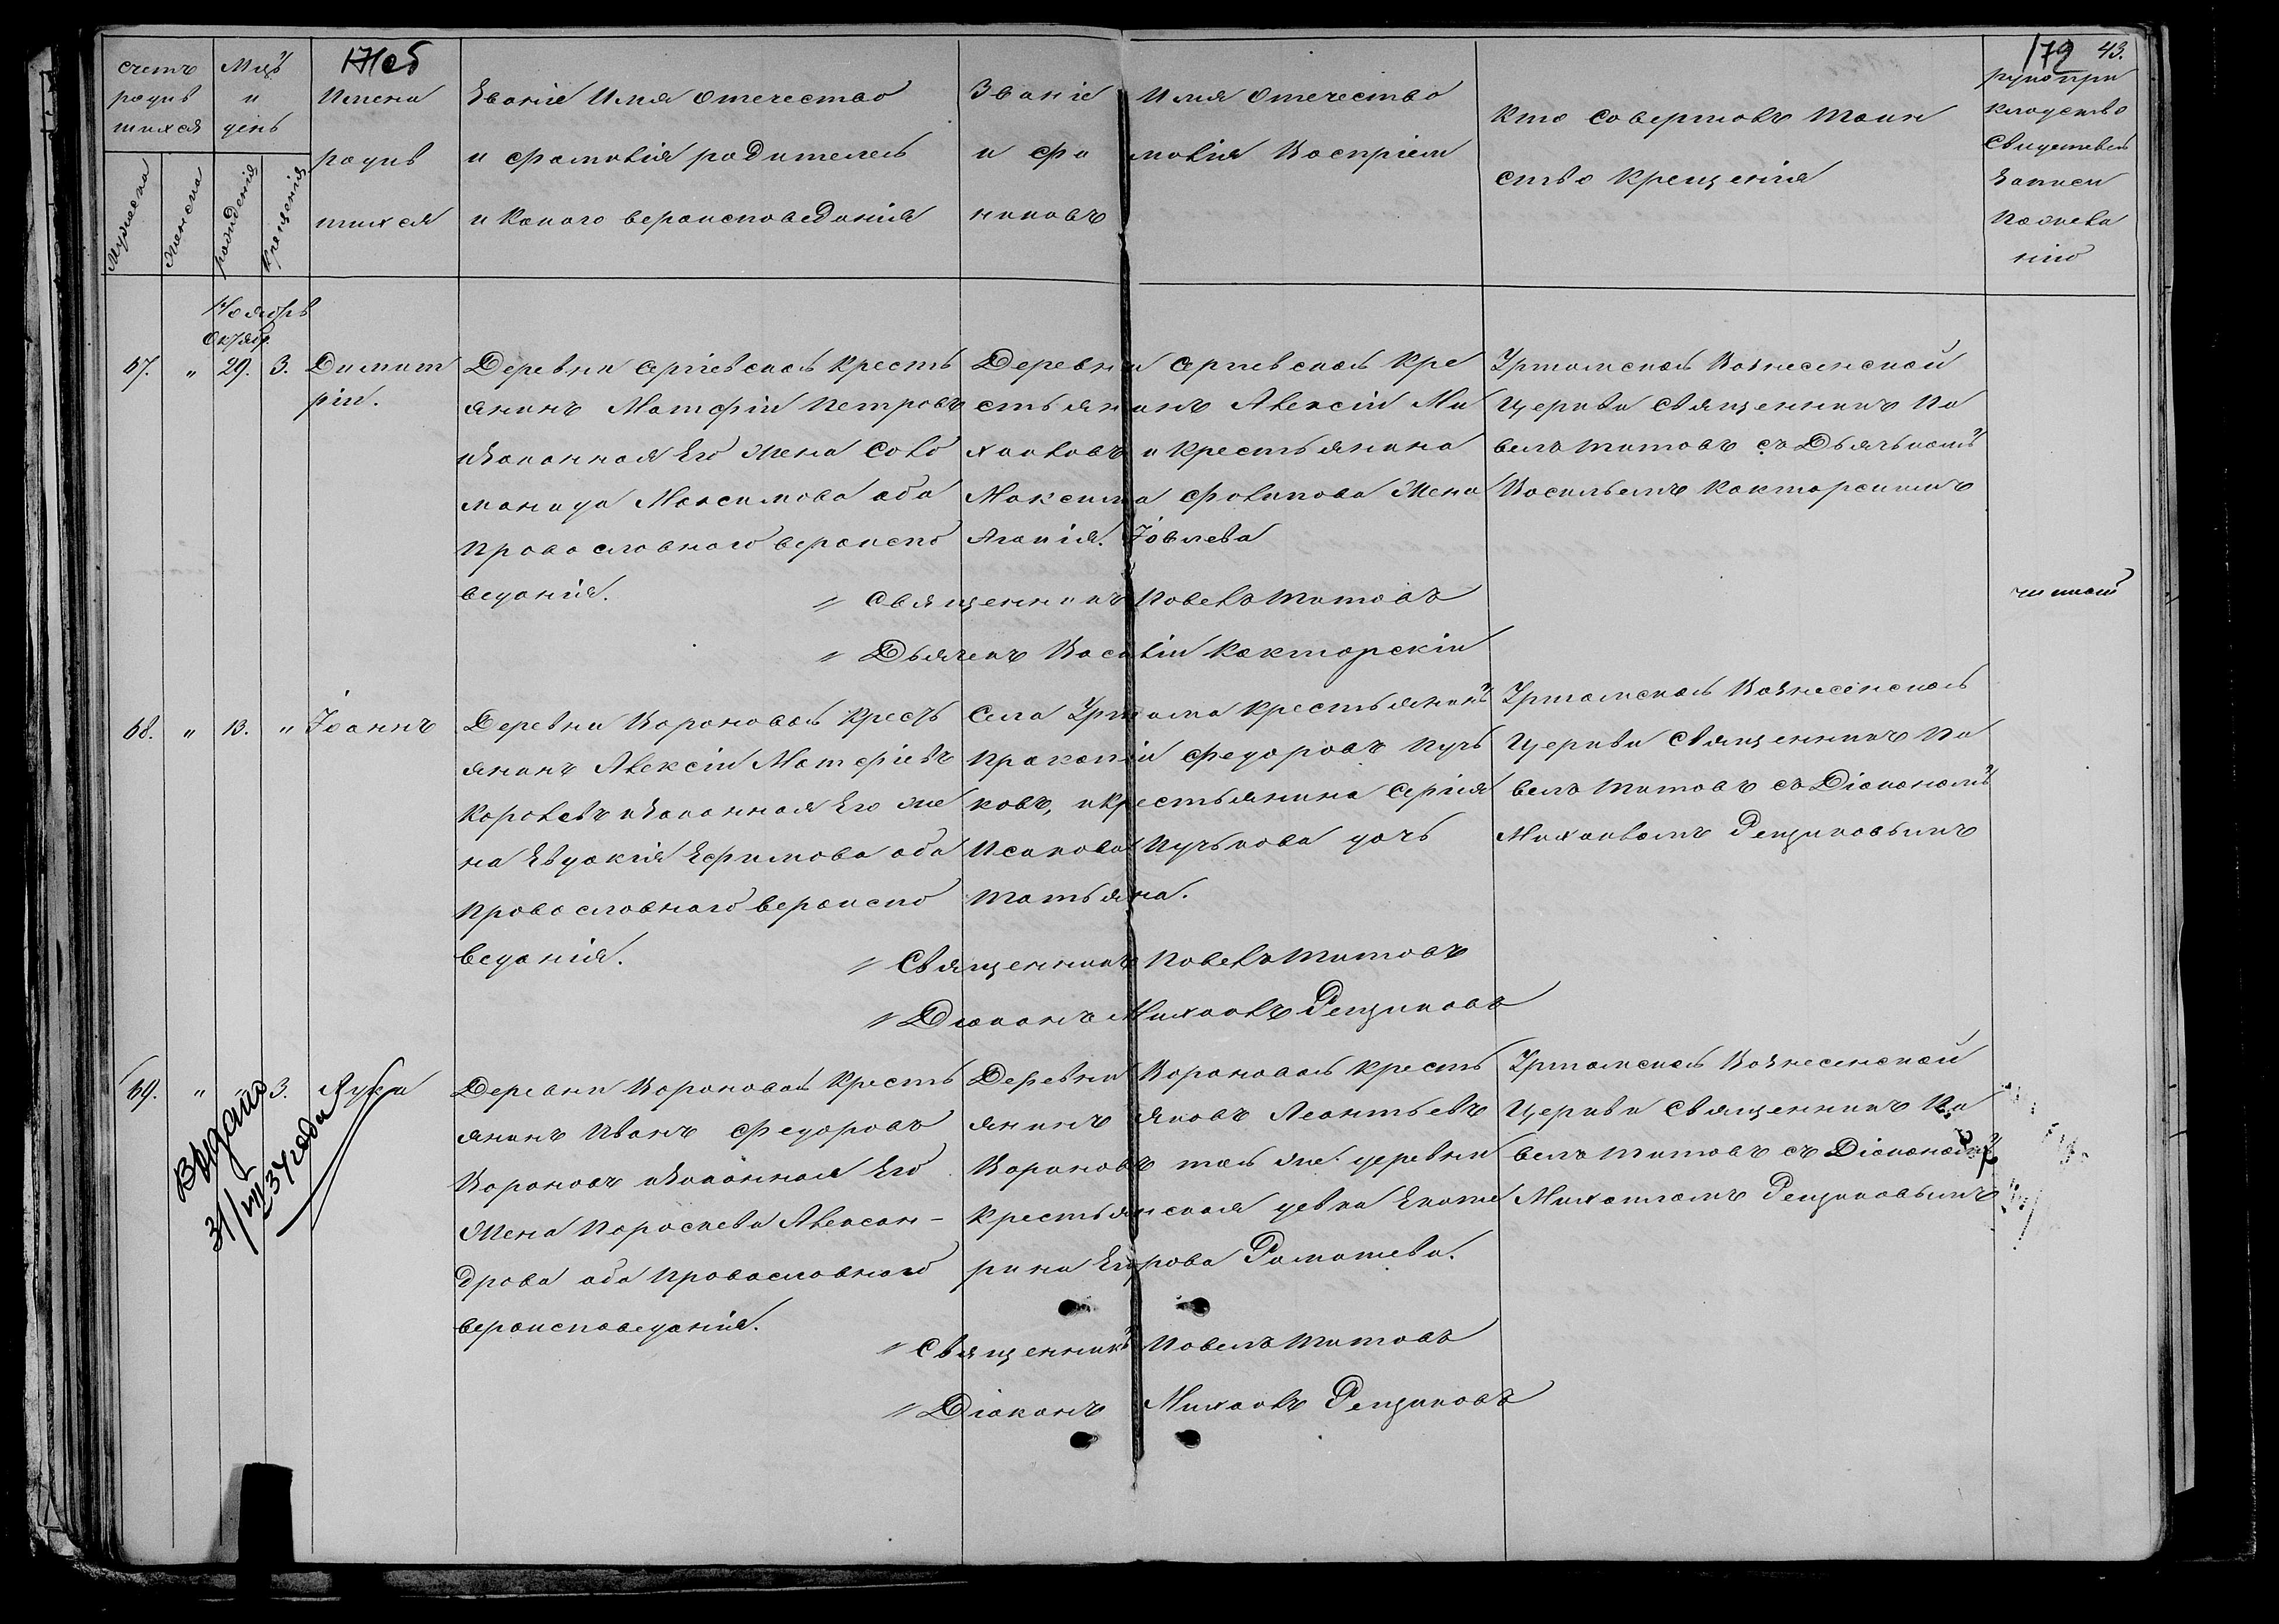 179 43.
счетъ родив шихся
Мцъ и день
Имена родив шихся
Званіе Имя Отечество и фамилія родителей и Какого вероисповеданія
Званіе Имя Отечество и фамилія Воспріем никовъ
Кто Совершалъ Таин ство Крещенія
рукопри кладство Свидетелей Записи По желанію
Мужеска
Женска
рожденія
Крещенія
Ноябрь
Октябр.
67. " 29. 3. Димит
рій.
Деревни Сергіевской Кресть
янинъ Матфій Петровъ
и Законная Его Жена Соло
манида Максимова оба
Православнаго вероиспо
веданія.
Деревни Сергіевской Кре
стьянинъ Алексій Ми
хаиловъ и Крестьянина
Максима Филипова Жена
Агапія. Іовлева
Уртамской Вознесенской
Церкви Священникъ Па
велъ Титовъ съ Дьячькомъ
Васильемъ Кокторскимъ
" Священникъ Павелъ Титовъ
" Дьячекъ Василій Кокторскій
68. " 13. " Іоаннъ
Деревни Вороновой Кресть
янинъ Алексій Матфіевъ
Королевъ и Законная Его Же
на Евдокія Ефимова оба
Православнаго вероиспо
веданія.
Села Уртама Крестьянинъ
Прокопій Федоровъ Пучь
ковъ, и Крестьянина Сергія
Исакова Пучькова дочь
Татьяна.
Уртамской Вознесенской
Церкви Священникъ Па
велъ Титовъ съ Діакономъ
Михаиломъ Рещиковымъ
" Священникъ Павелъ Титовъ
" Діаконъ Михаилъ Рещиковъ
69. " " 3. Лука
Выдано
31/VII 37 года
Деревни Вороновой Кресть
янинъ Иванъ Федоровъ
Вороновъ и Законная Его
Жена Параскева Алексан-
дрова оба Православнаго
вероисповеданія.
Деревни Вороновой Кресть
янинъ Яковъ Леонтьевъ
Вороновъ той же деревни
Крестьянская девка Екате
рина Егорова Ромашева.
Уртамской Вознесенской
Церкви Священникъ Па
велъ Титовъ съ Діакономъ
Михаиломъ Рещиковымъ
" Священникъ Павелъ Титовъ
" Діаконъ Михаилъ Рещиковъ